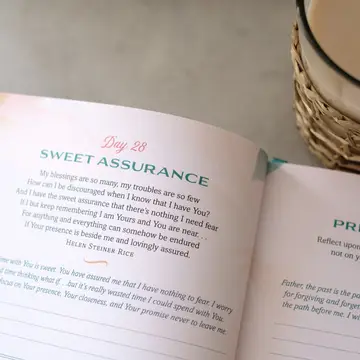 Day 28
SWEET ASSURANCE
My blessings are so many, my troubles are so few
How can I be discouraged when I know that I have You?
And I have the sweet assurance that there's nothing I need fear
If I but keep remembering I am Yours and You are near...
For anything and everything can somehow be endured
If Your presence is beside me and lovingly assured.
HELEN STEINER RICE
me with You is sweet. You have assured me that I have nothing to fear. I worry
time thinking what if...but it's really wasted time I could spend with You.
focus on Your presence, Your closeness, and Your promise never to leave me.
PR
Reflect upon
not on y
Father, the past is the pa
for forgiving and forge
the path before me. I wi